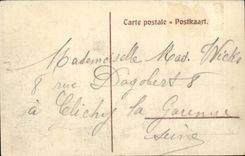 Carte postale - Postkaart.
Mademoiselle Mad. Wicks
8 rue Dagobert 8
à Clichy la Garenne
Seine